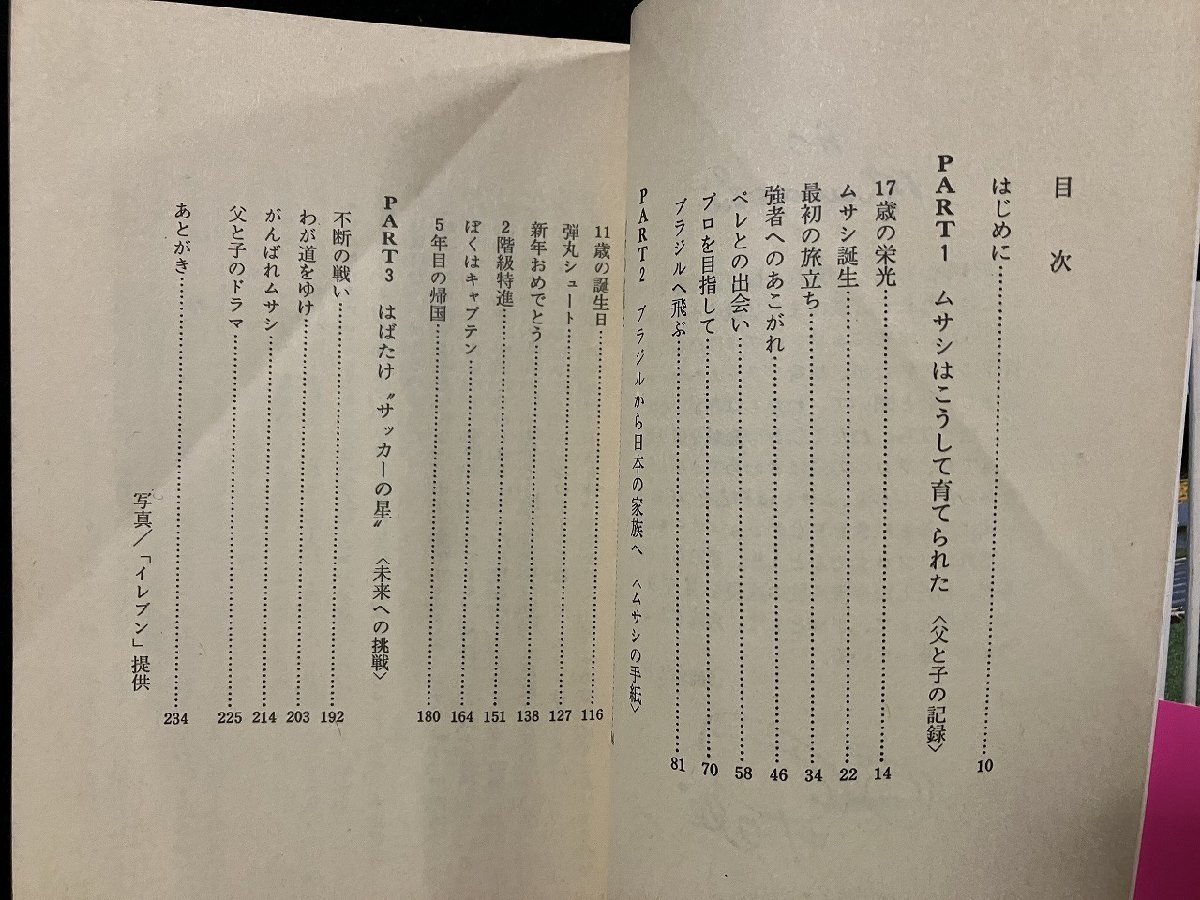 目次
はじめに……10
PART1 ムサシはこうして育てられた 〈父と子の記録〉
17歳の栄光……14
ムサシ誕生……22
最初の旅立ち……34
強者へのあこがれ……46
ペレとの出会い……58
プロを目指して……70
ブラジルへ飛ぶ……81
PART2 ブラジルから日本の家族へ 〈ムサシの手紙〉
11歳の誕生日……116
弾丸シュート……127
新年おめでとう……138
2階級特進……151
ぼくはキャプテン……164
5年目の帰国……180
PART3 はばたけ〝サッカーの星〟 〈未来への挑戦〉
不断の戦い……192
わが道をゆけ……203
がんばれムサシ……214
父と子のドラマ……225
あとがき……234
写真/「イレブン」提供